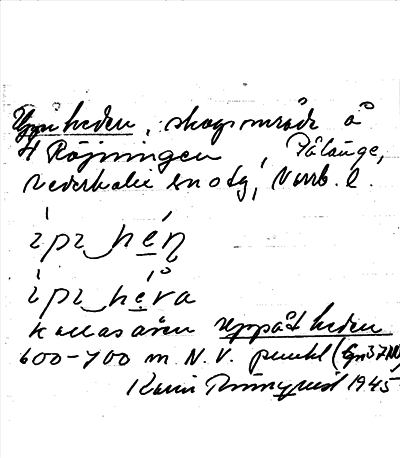 heden, skogsområde å
H Röjningen, Pålänge,
Nederkalix snstg, Norrb. l.
ipi hén
ipi héra
kallas även Uppåt heden
600-700 m N.V. punkt (
Karin 1945